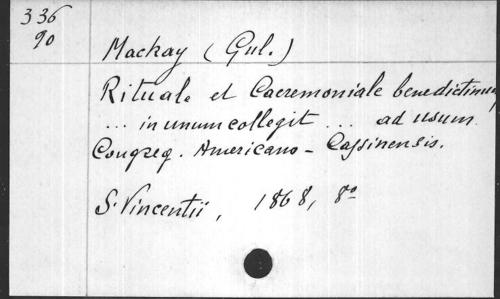 336
90
Mackay (Gul.)
Rituale et Caeremoniale benedictinum
... in unum collegit ... ad usum
Congreg. Americano - Cassinensis.
S. Vincentii, 1868, 8º